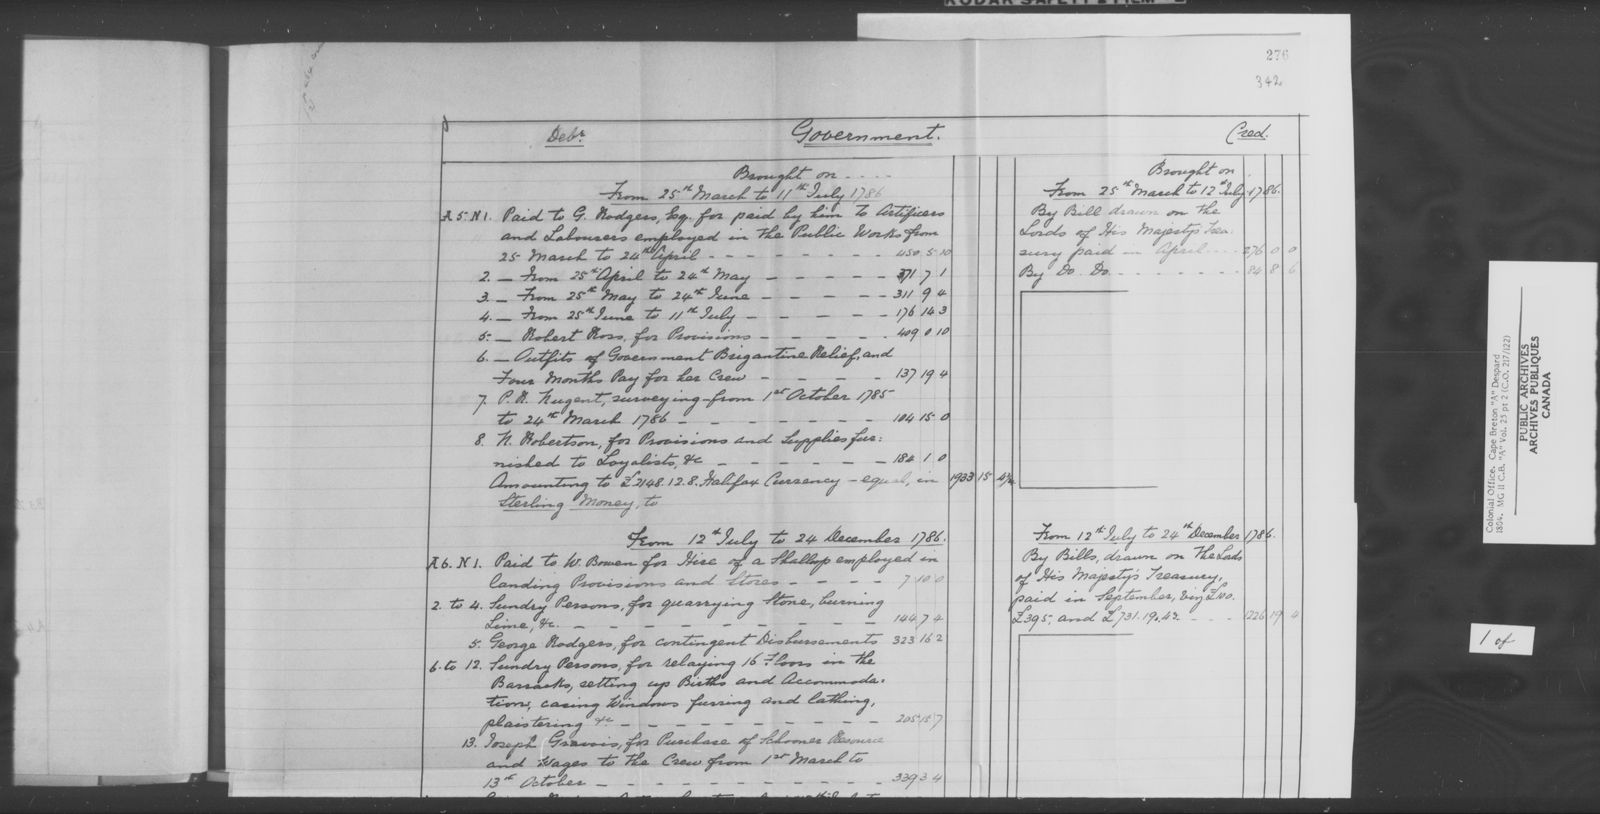 KODAK SAFETY FILM
276
342
Debr. Government. Cred.
Brought on . . . .
From 25th March to 11th July 1786
A 5. N 1. Paid to G. Rodgers, Esq. for paid by him to Artificers
and Labourers employed in the Public Works from
25 March to 24th April - - - - - - - - 450 5 10
2. — From 25th April to 24th May - - - - - 371 7 1
3. — From 25th May to 24th June - - - - - 311 9 4
4. — From 25th June to 11th July - - - - - 176 14 3
5. — Robert Ross, for Provisions - - - - - 409 0 10
6. — Outfits of Government Brigantine Relief, and
Four Months Pay for her Crew - - - - - 137 19 4
7. P. R. Nugent, surveying from 1st October 1785
to 24th March 1786 - - - - - - - 104 15 0
8. N. Robertson, for Provisions and Supplies fur:
nished to Loyalists, &c - - - - - - 184 1 0
Amounting to £2148.12.8. Halifax Currency - equal, in 1933 15
Sterling Money, to
From 12th July to 24 December 1786.
A 6. N 1. Paid to W. Bowen for Hire of a Shallop employed in
landing Provisions and Stores - - - - 7 10 0
2. to 4. Sundry Persons, for quarrying Stone, burning
Lime, &c. - - - - - - - - - 144 7 4
5. George Rodgers, for contingent Disbursements 323 16 2
6. to 12. Sundry Persons, for relaying 16 Floors in the
Barracks, setting up Births and Accommoda:
tion, casing Windows furring and lathing,
plaistering &c - - - - - - - - - 205 15 7
13. Joseph Gravois, for Purchase of Schooner Resource
and Wages to the Crew from 1st March to
13th October - - - - - - - - - - 339 3 4
Brought on .
From 25th March to 12th July 1786.
By Bill drawn on the
Lords of His Majesty's Trea:
sury paid in April - - - 276 0 0
By Do. Do. - - - - - - - 84 8 6
From 12th July to 24th December 1786.
By Bills, drawn on the Lords
of His Majesty's Treasury,
paid in September, viz £100.
£395, and £731.19.4. - - - 1226 19 4
Colonial Office. Cape Breton "A" Despard
1804. MG 11 C.B. "A" Vol. 25 pt 2 (C.O. 217/122)
PUBLIC ARCHIVES
ARCHIVES PUBLIQUES
CANADA
1 of